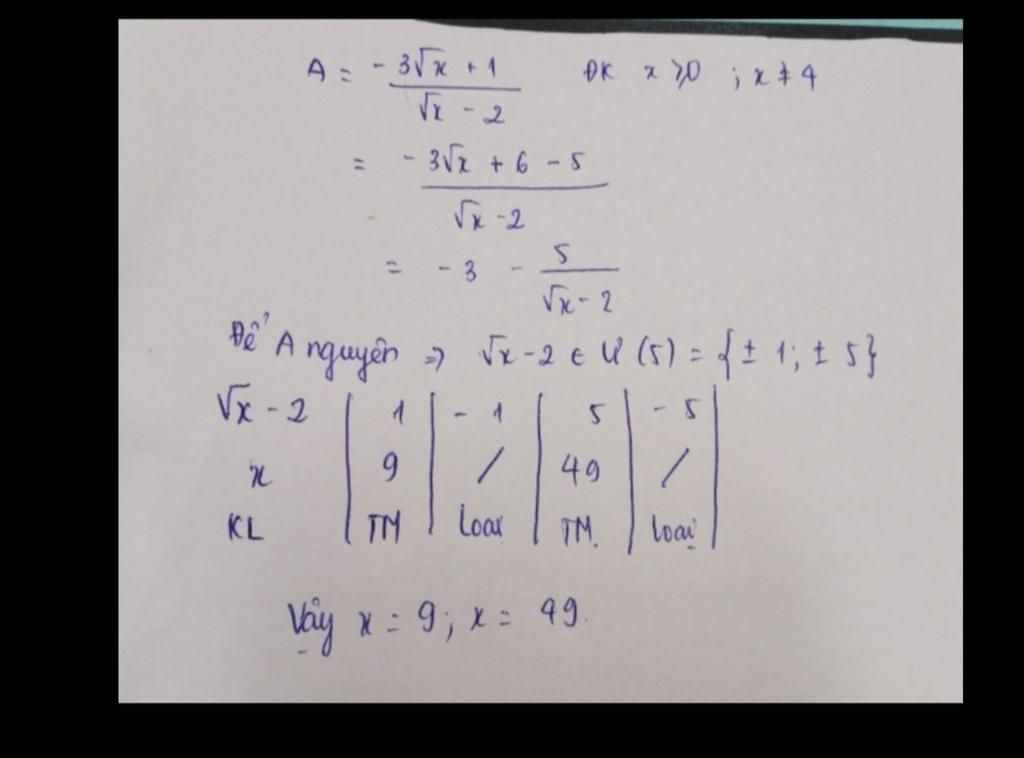 A = -3√x + 1 / √x - 2 ĐK x ≥ 0 ; x ≠ 4
= -3√x + 6 - 5 / √x - 2
= -3 - 5 / √x - 2
Để A nguyên ⇒ √x - 2 ∈ Ư (5) = {± 1; ± 5}
√x - 2 | 1 | - 1 | 5 | - 5 |
x | 9 | / | 49 | / |
KL | TM | Loại | TM. | Loại |
Vậy x = 9; x = 49.